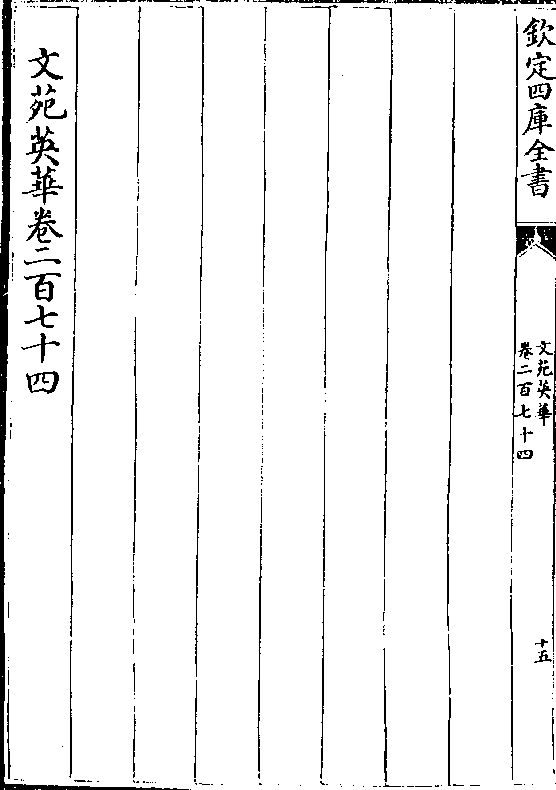 欽定四庫全書
文苑英華
卷二百七十四
十五
文苑英華卷二百七十四